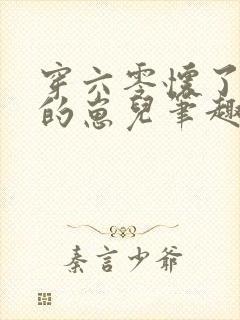 穿六零怀了
的崽儿笔趣
秦言少爷